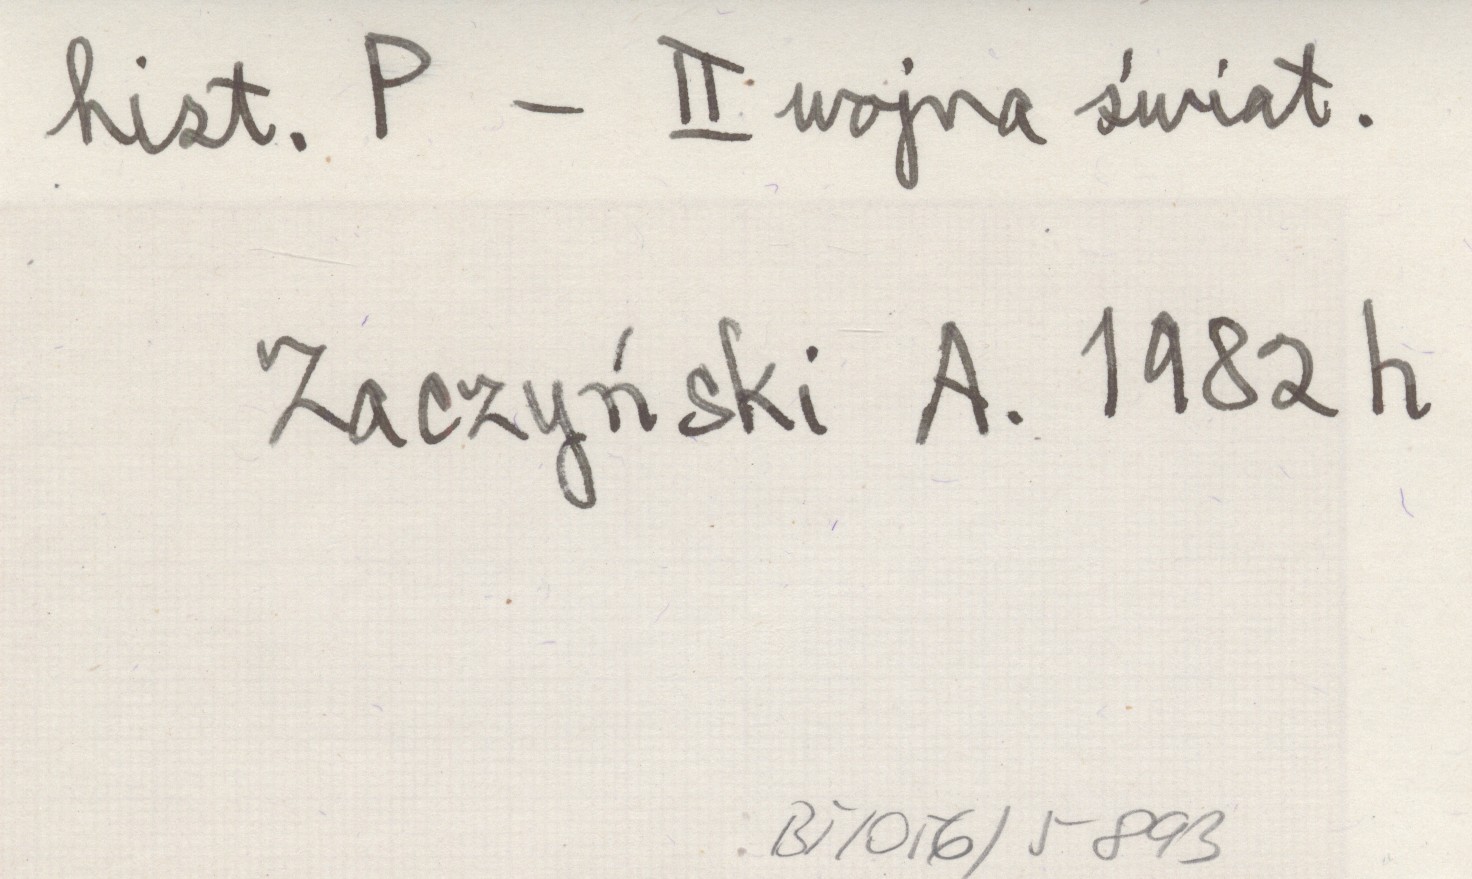 hist. P – II wojna świat.
Zaczyński A. 1982 h
893